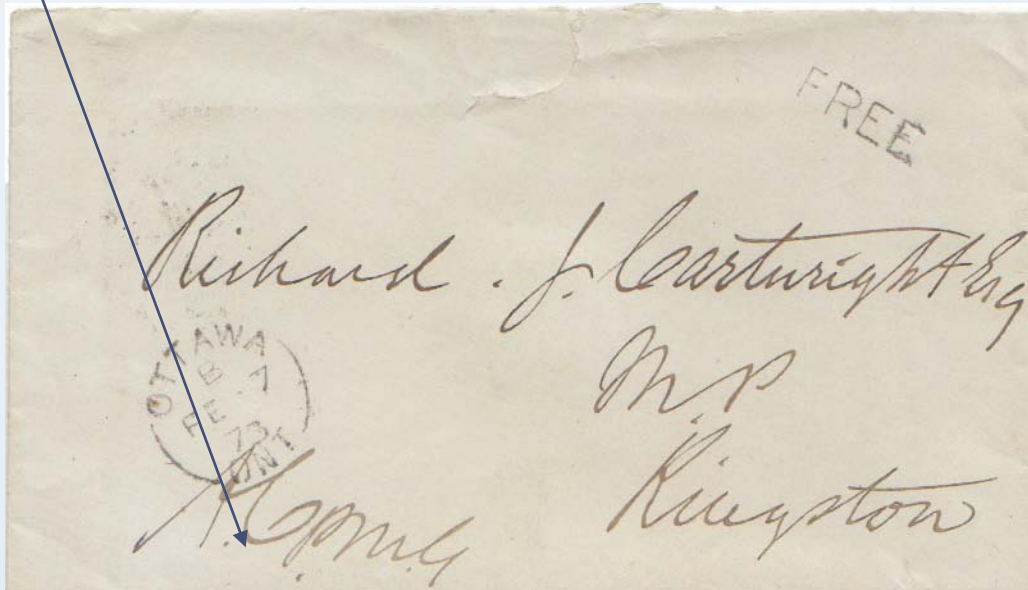 FREE
Richard . J. Cartwright Esq
M.P
Kingston
OTTAWA
B
FE 7
73
ONT